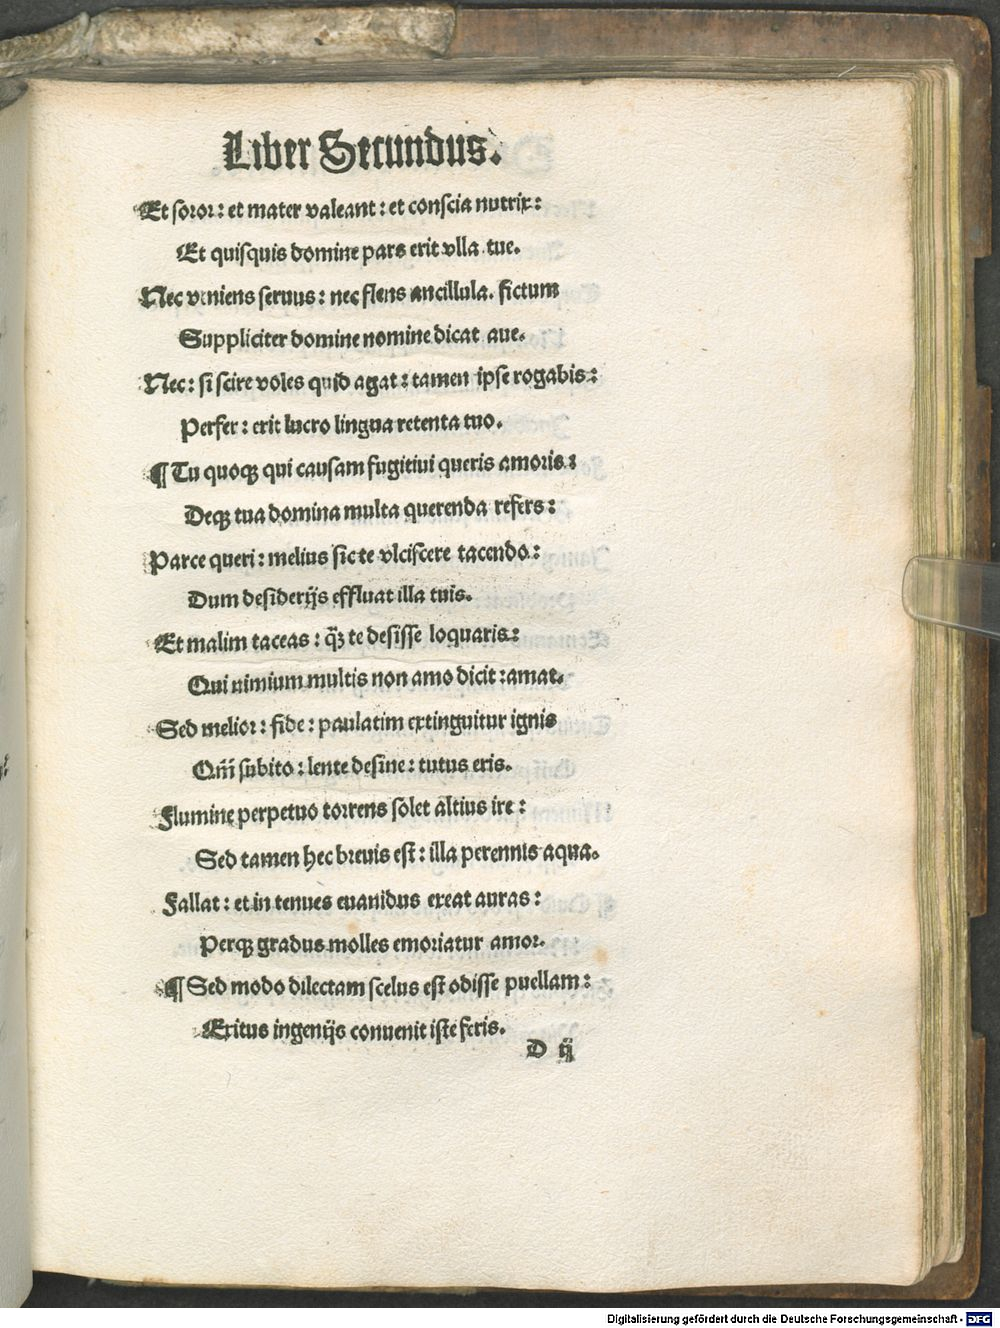 Liber Secundus.
Et soror: et mater valeant: et conscia nutrix:
Et quisquis domine pars erit vlla tue.
Nec veniens seruus: nec flens ancillula. fictum
Suppliciter domine nomine dicat aue.
Nec: si scire voles quid agat: tamen ipse rogabis:
Perfer: erit lucro lingua retenta tuo.
¶ Tu quoqꝫ qui causam fugitiui queris amoris:
Deqꝫ tua domina multa querenda refers:
Parce queri: melius sic te vlciscere tacendo:
Dum desiderijs effluat illa tuis.
Et malim taceas: q̃ꝫ te desisse loquaris:
Qui nimium multis non amo dicit: amat.
Sed melior: fide: paulatim extinguitur ignis
Qm̃ subito: lente desine: tutus eris.
Flumine perpetuo torrens solet altius ire:
Sed tamen hec breuis est: illa perennis aqua.
Fallat: et in tenues euanidus exeat auras:
Perqꝫ gradus molles emoriatur amor.
¶ Sed modo dilectam scelus est odisse puellam:
Exitus ingenijs conuenit iste feris.
D ij
Digitalisierung gefördert durch die Deutsche Forschungsgemeinschaft - DFG